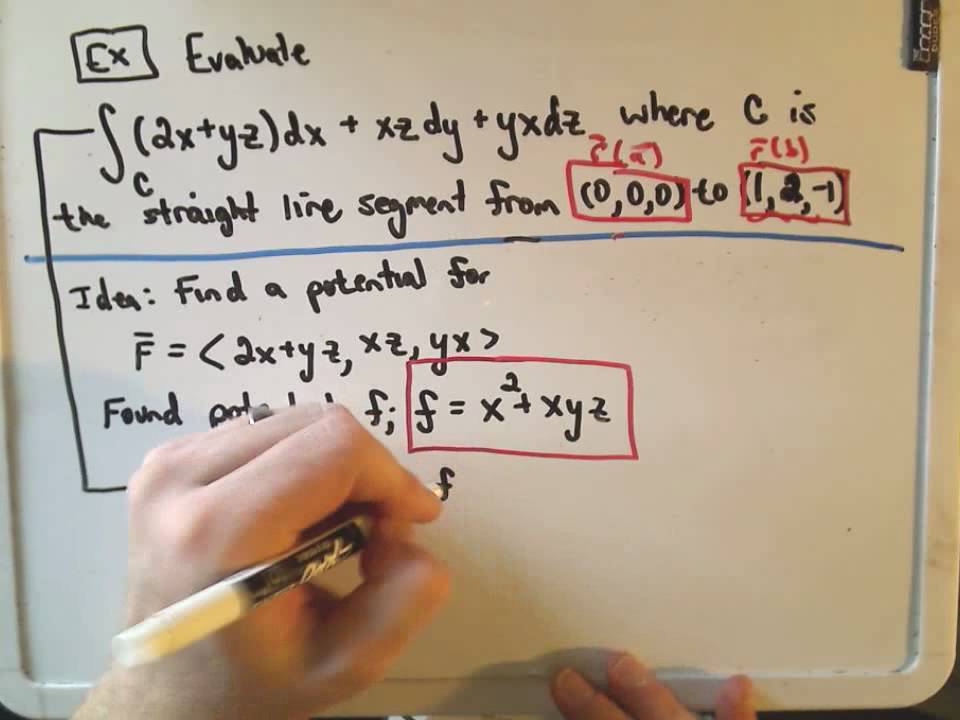 Ex Evaluate
∫_C (2x+yz)dx + xz dy + yx dz where C is
r̄(a) r̄(b)
the straight line segment from (0,0,0) to (1,2,-1)
Idea: Find a potential for
F̄ = <2x+yz, xz, yx>
Found f; f = x² + xyz
f